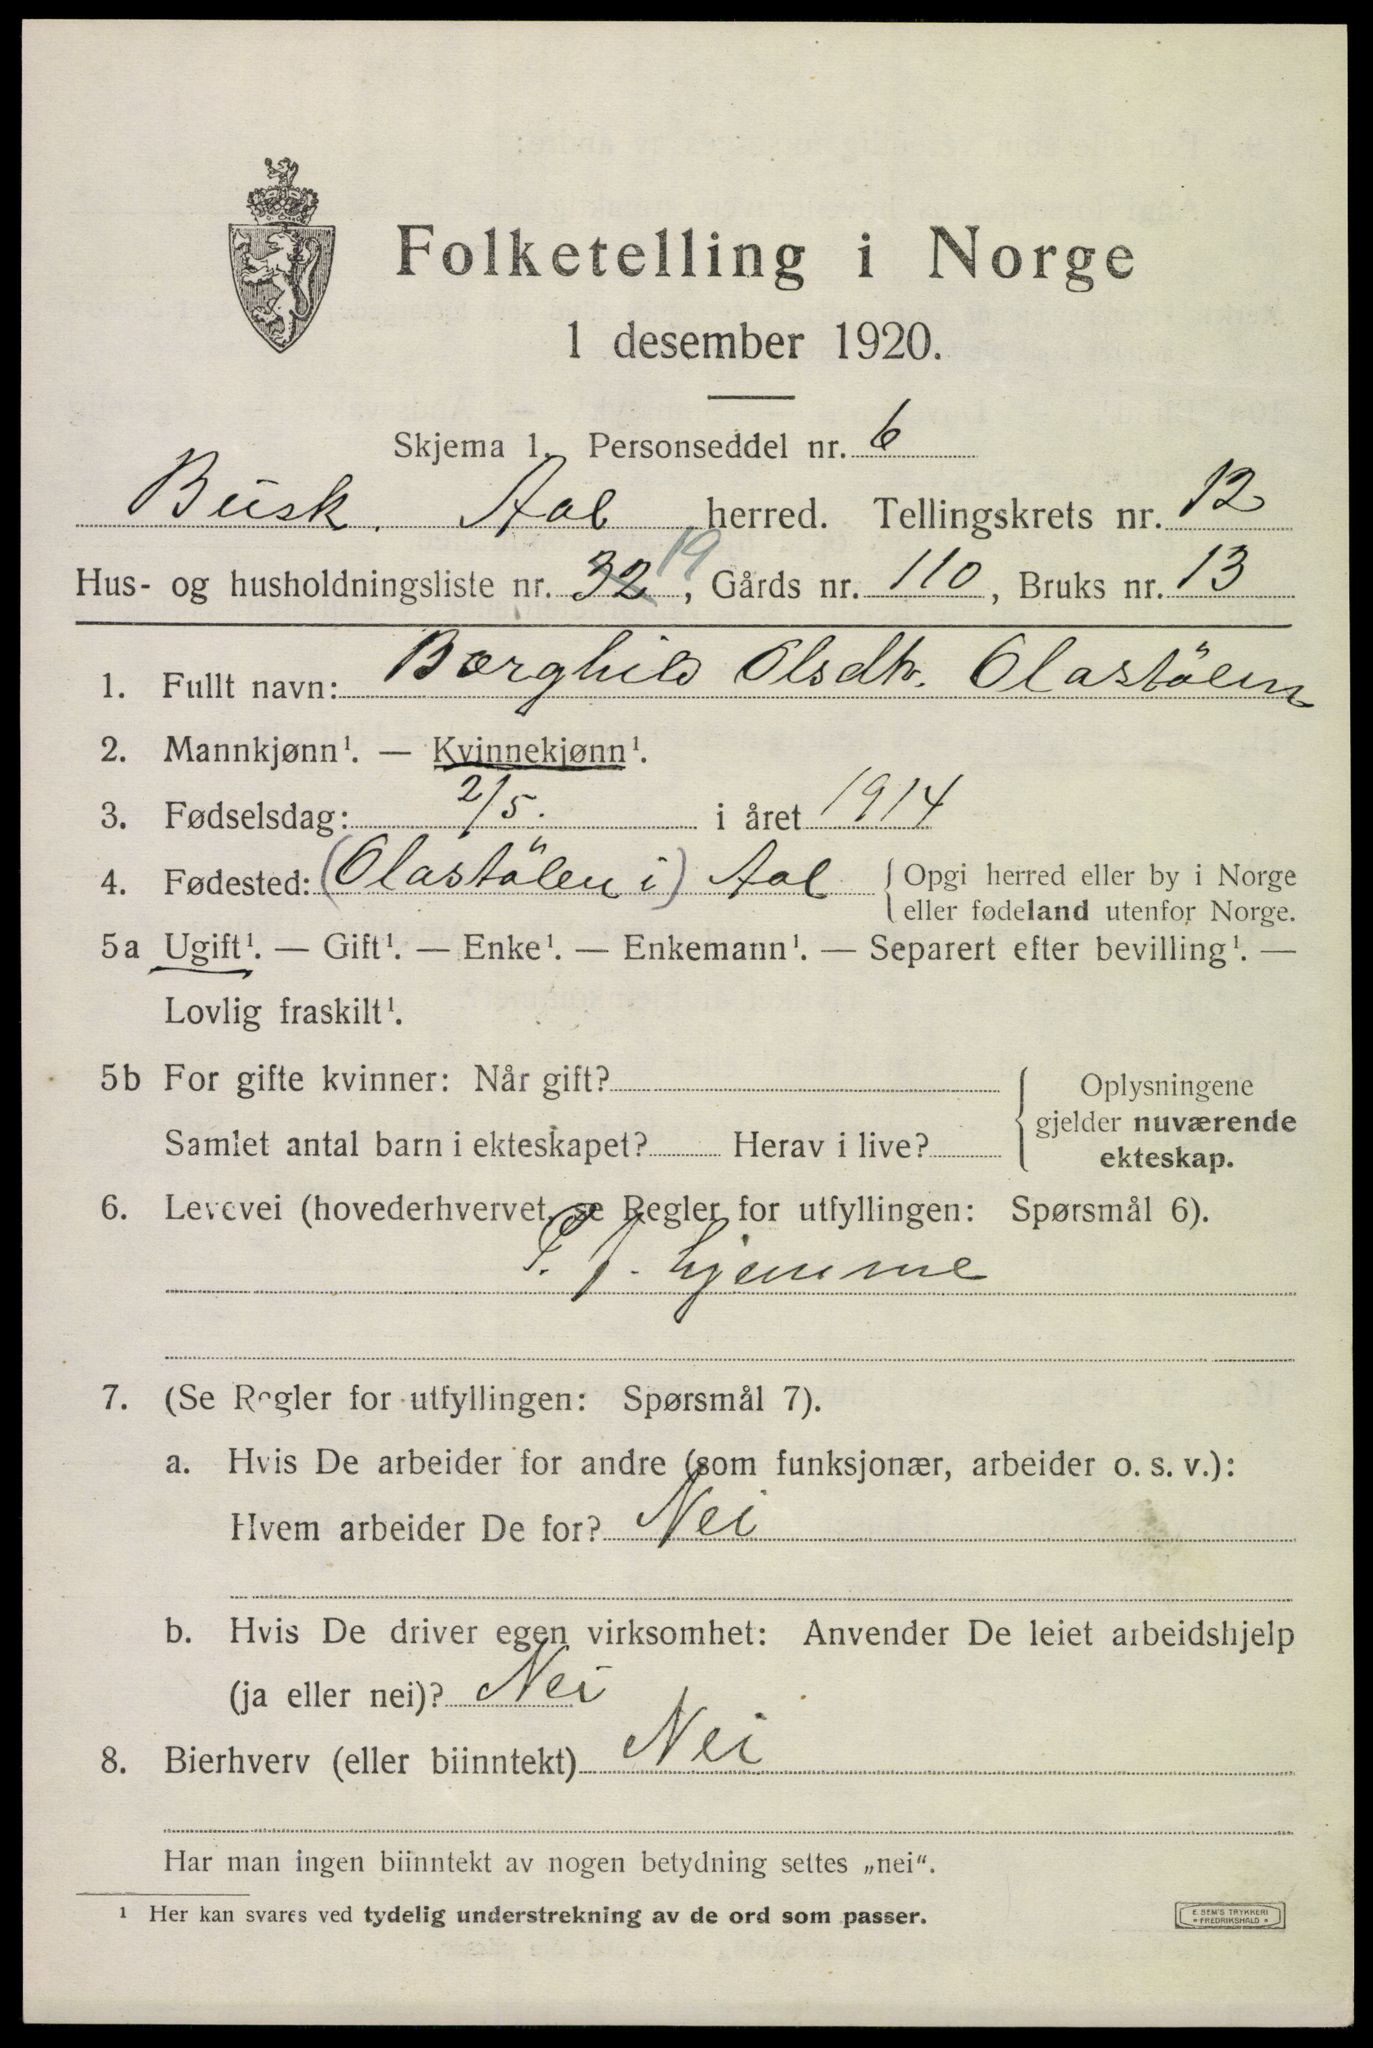 Folketelling i Norge
1 desember 1920.
Skjema 1. Personseddel nr. 6
Busk. Aal herred. Tellingskrets nr. 12
Hus- og husholdningsliste nr. 32 19, Gårds nr. 110, Bruks nr. 13
1. Fullt navn: Borghild Olsdtr. Olastölen
2. Mannkjønn¹. — Kvinnekjønn¹.
3. Fødselsdag: 2/5. i året 1914
4. Fødested: (Olastölen i) Aal { Opgi herred eller by i Norge
eller fødeland utenfor Norge.
5a Ugift¹. — Gift¹. — Enke¹. — Enkemann¹. — Separert efter bevilling¹. —
Lovlig fraskilt¹.
5b For gifte kvinner: Når gift?
Samlet antal barn i ekteskapet? Herav i live?
{ Oplysningene
gjelder nuværende
ekteskap.
6. Levevei (hovederhvervet, se Regler for utfyllingen: Spørsmål 6).
hjemme
7. (Se Regler for utfyllingen: Spørsmål 7).
a. Hvis De arbeider for andre (som funksjonær, arbeider o. s. v.):
Hvem arbeider De for? Nei
b. Hvis De driver egen virksomhet: Anvender De leiet arbeidshjelp
(ja eller nei)? Nei
8. Bierhverv (eller biinntekt) Nei
Har man ingen biinntekt av nogen betydning settes „nei“.
¹ Her kan svares ved tydelig understrekning av de ord som passer.
E. SEM'S TRYKKERI
* FREDRIKSHALD *